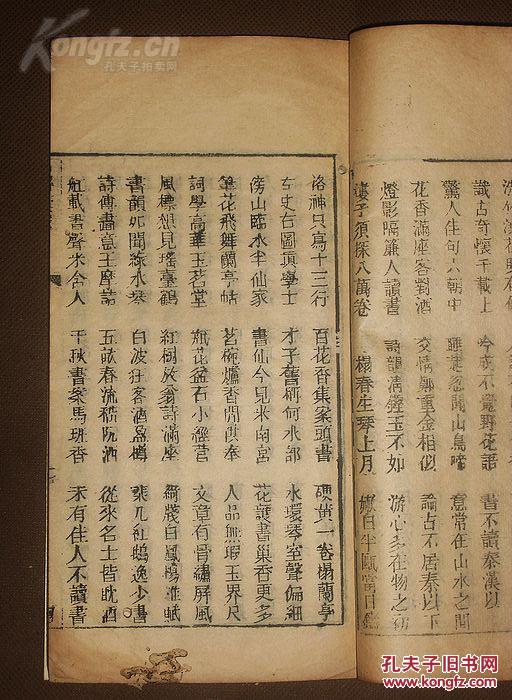 Kongfz.cn
孔夫子拍卖网
識古奇懷千載上
驚人佳句六朝中
花香滿座客對酒
交情鄭重金相似
論古不居秦以下
燈影隔簾人讀書
詩韻清鏘玉不如
游心多在物之初
書不讀秦漢以
意常在山水之間
樓子須探八萬卷
榻春生琴上月
洛神只寫十三行
百花香集案頭書
硬黃一卷榻蘭亭
左史右圖項學士
才子舊稱何水部
水環琴室聲偏細
傍山臨水半仙家
書仙今見米南宮
花襲書巢香更多
筆花飛舞蘭亭帖
茗碗爐香閒供奉
人品無瑕玉界尺
詞學高華玉茗堂
瓶花盆石小經營
文章有骨繡屏風
風標想見瑤臺鶴
紅樹放翁詩滿座
書韻如聞綠水琴
白波狂客酒盈樽
詩傳畫意王摩詰
五畝春流稽阮酒
從來名士皆耽酒
舡載書聲米舍人
千秋書案馬班香
未有佳人不讀書
孔夫子旧书网
www.kongfz.com